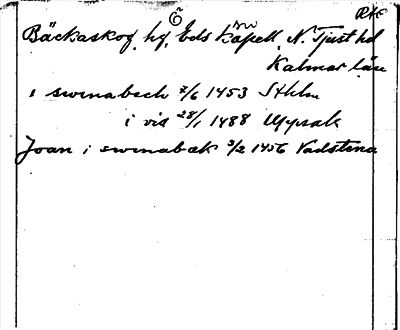 Ö RK
Bäckaskog, hg, Eds kapell, N. Tjust hd
Kalmar län
i swinabech 2/6 1453 Sthlm
i vid 28/1 1488 Uppsala
Joan i swinabæk 3/2 1456 Vadstena